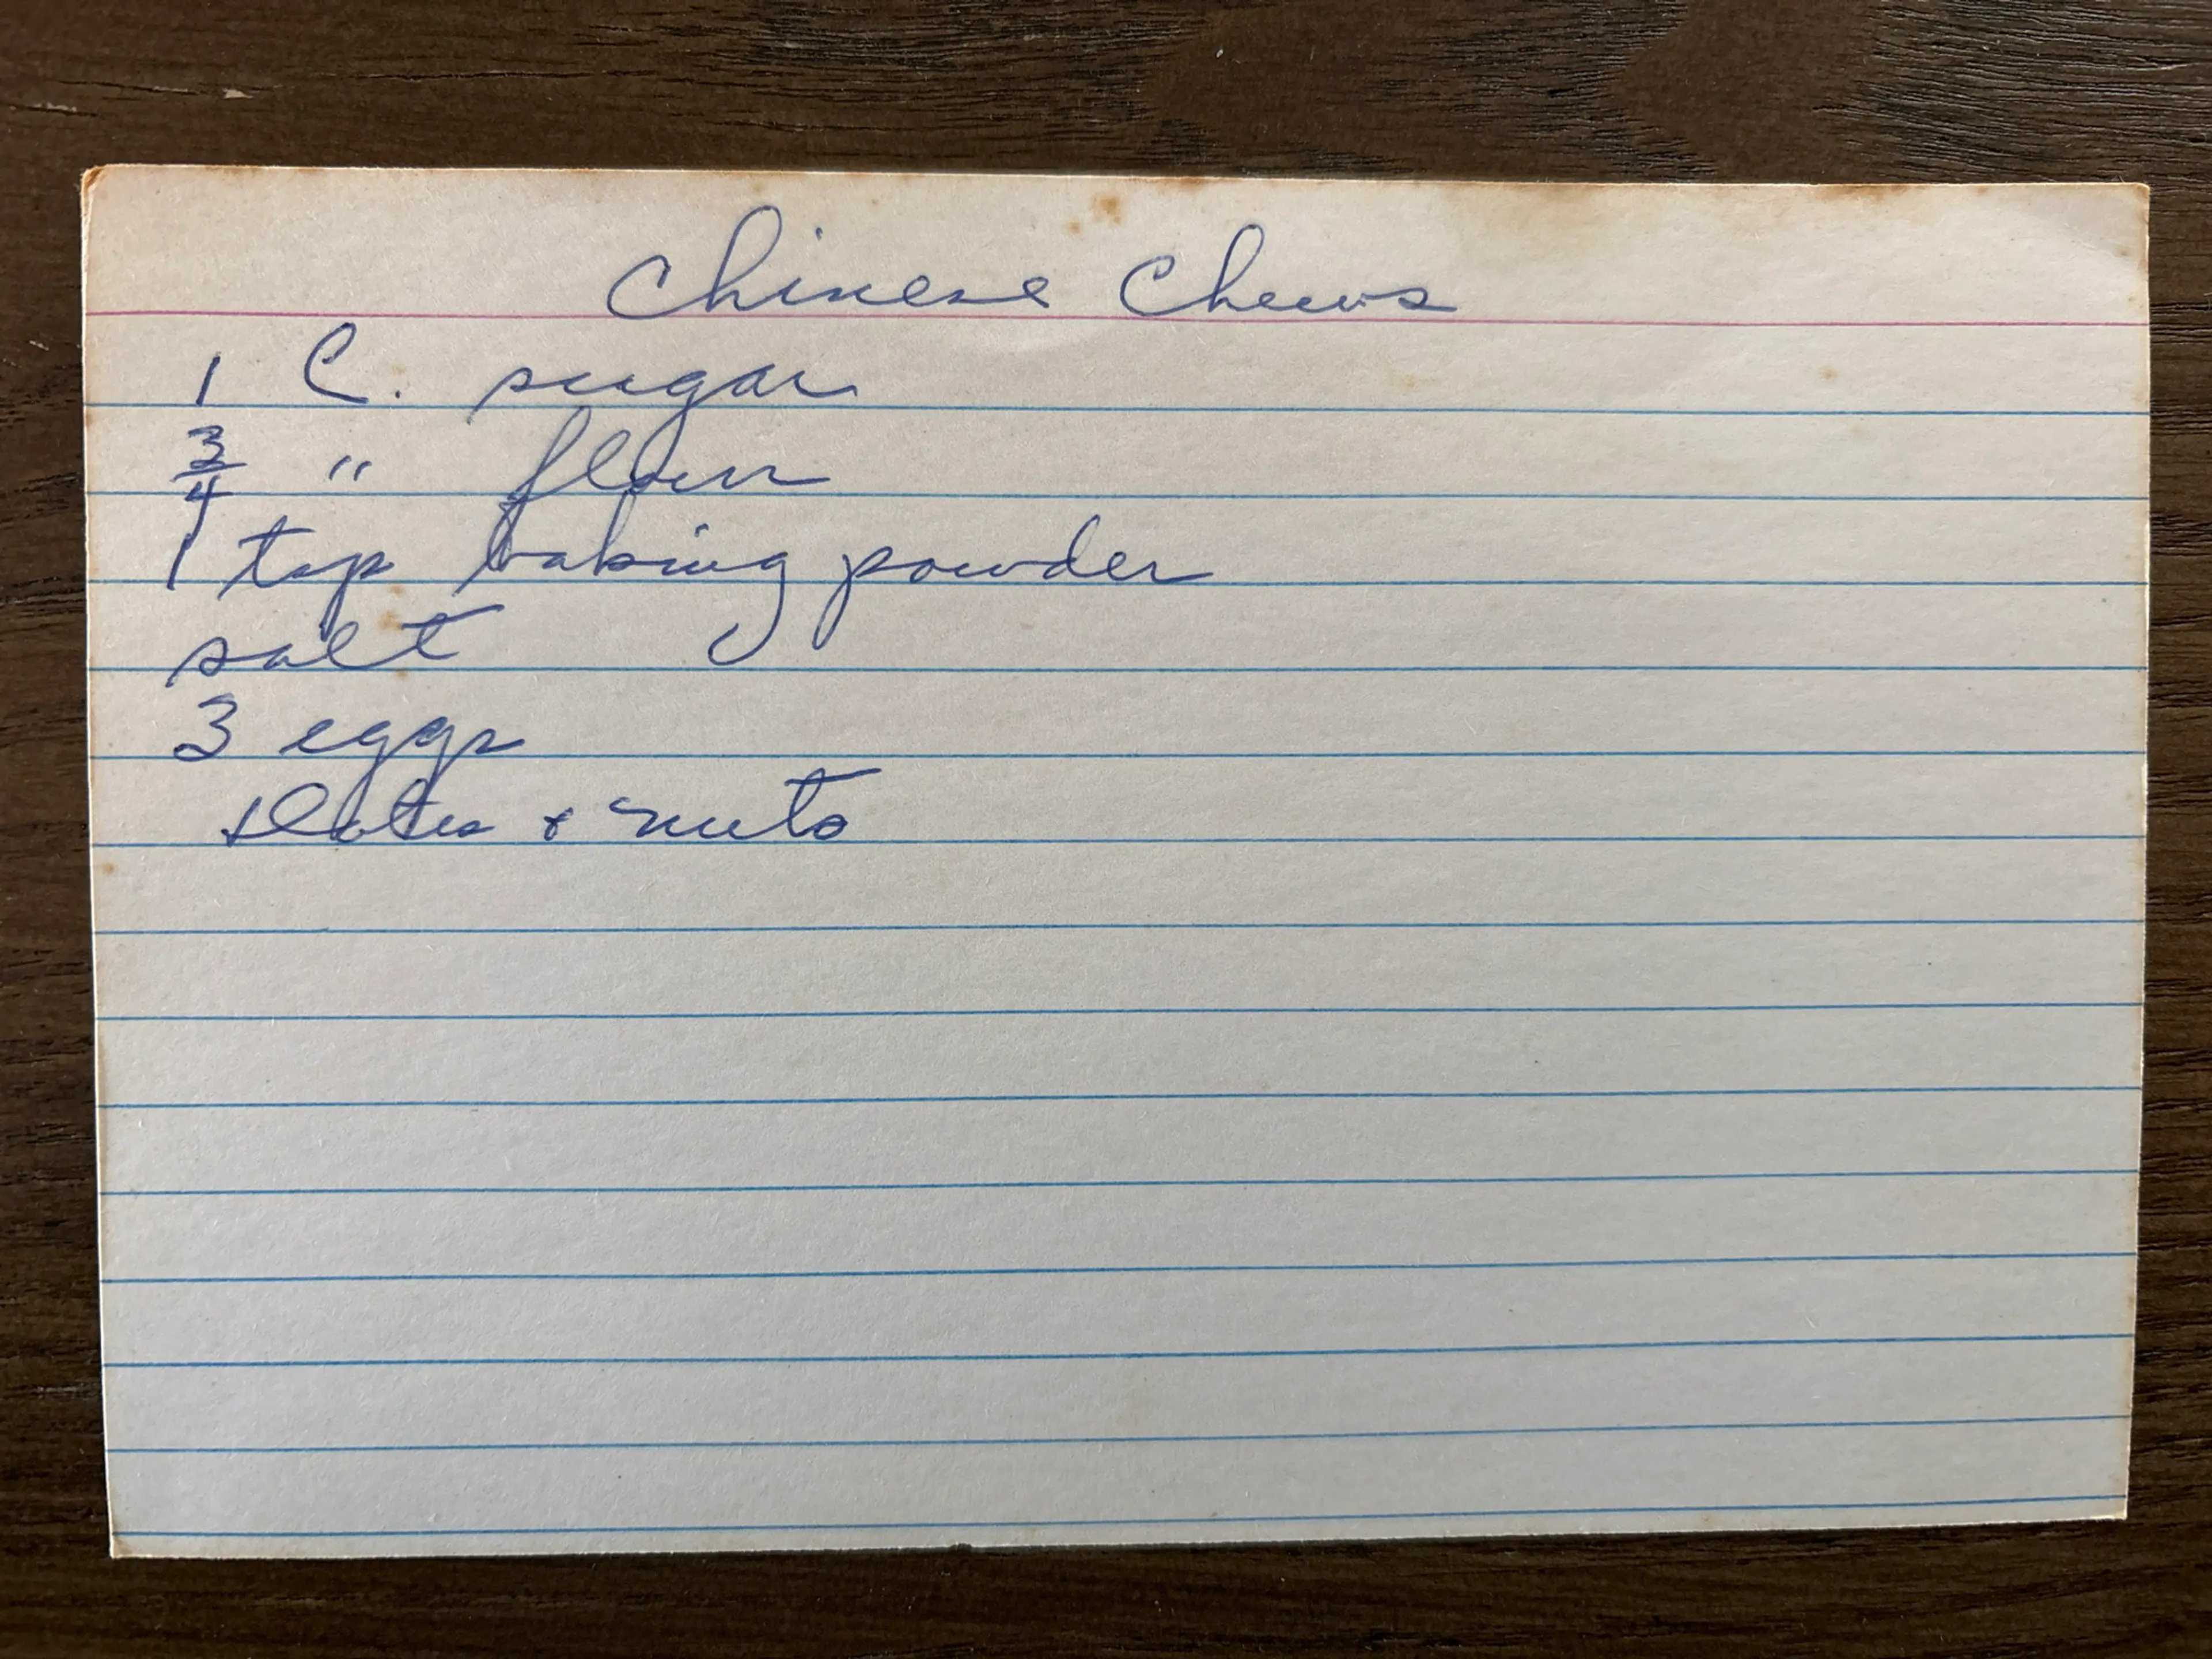 Chinese Chews
1 C. sugar
3/4 " flour
1 tsp baking powder
salt
3 eggs
Dates + nuts